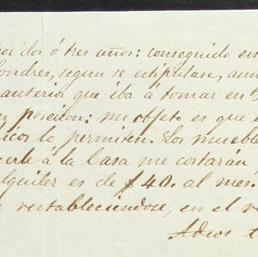 dos ó tres años: conseguido est
ondres, segun se estipulase, aun
anterior que iba á tomar en
posecion: mi objeto es que
icos lo permiten. Los mueble
á la Casa me costaran
lquiler es de £40. al mes.
restableciendose, en el
Adios